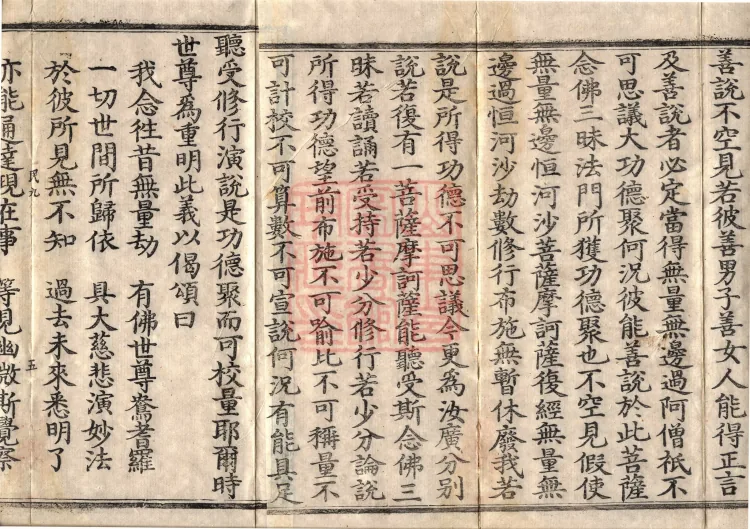 善說不空見若彼善男子善女人能得正言
及善說者必定當得無量無邊過阿僧祇不
可思議大功德聚何況彼能善說於此菩薩
念佛三昧法門所獲功德聚也不空見假使
無量無邊恒河沙菩薩摩訶薩復經無量無
邊過恒河沙劫數修行布施無暫休廢我若
說是所得功德不可思議今更爲汝廣分別
說若復有一菩薩摩訶薩能聽受斯念佛三
昧若讀誦若受持若少分修行若少分論說
所得功德望前布施不可喻比不可稱量不
可計校不可算數不可宣說何況有能具足
聽受修行演說是功德聚而可校量耶爾時
世尊爲重明此義以偈頌曰
我念往昔無量劫 有佛世尊鴦耆羅
一切世間所歸依 具大慈悲演妙法
於彼所見無不知 過去未來悉明了
民九 五
亦能通達現在事 等見幽微斯覺察